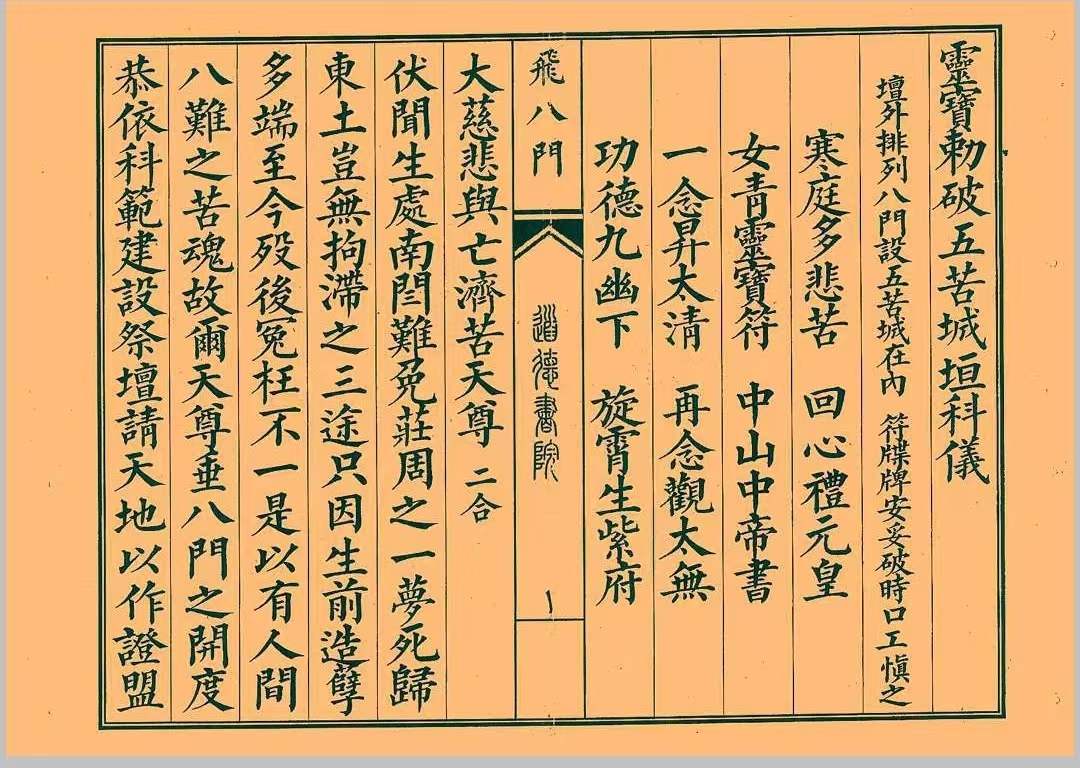 靈寶勅破五苦城垣科儀
壇外排列八門設五苦城在內 符牒牌安妥破時口工慎之
寒庭多悲苦 回心禮元皇
女青靈寶符 中山中帝書
一念昇太清 再念觀太無
功德九幽下 旋霄生紫府
飛八門
道德書院
大慈悲與亡濟苦天尊 二合
伏聞生處南閻難免莊周之一夢死歸
東土豈無拘滯之三途只因生前造孽
多端至今歿後冤枉不一是以有人間
八難之苦魂故爾天尊垂八門之開度
恭依科範建設祭壇請天地以作證盟